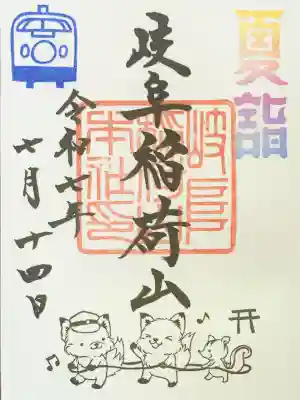 夏詣
岐阜稲荷山
岐阜
稲荷山
本社印
令和七年
七月十四日